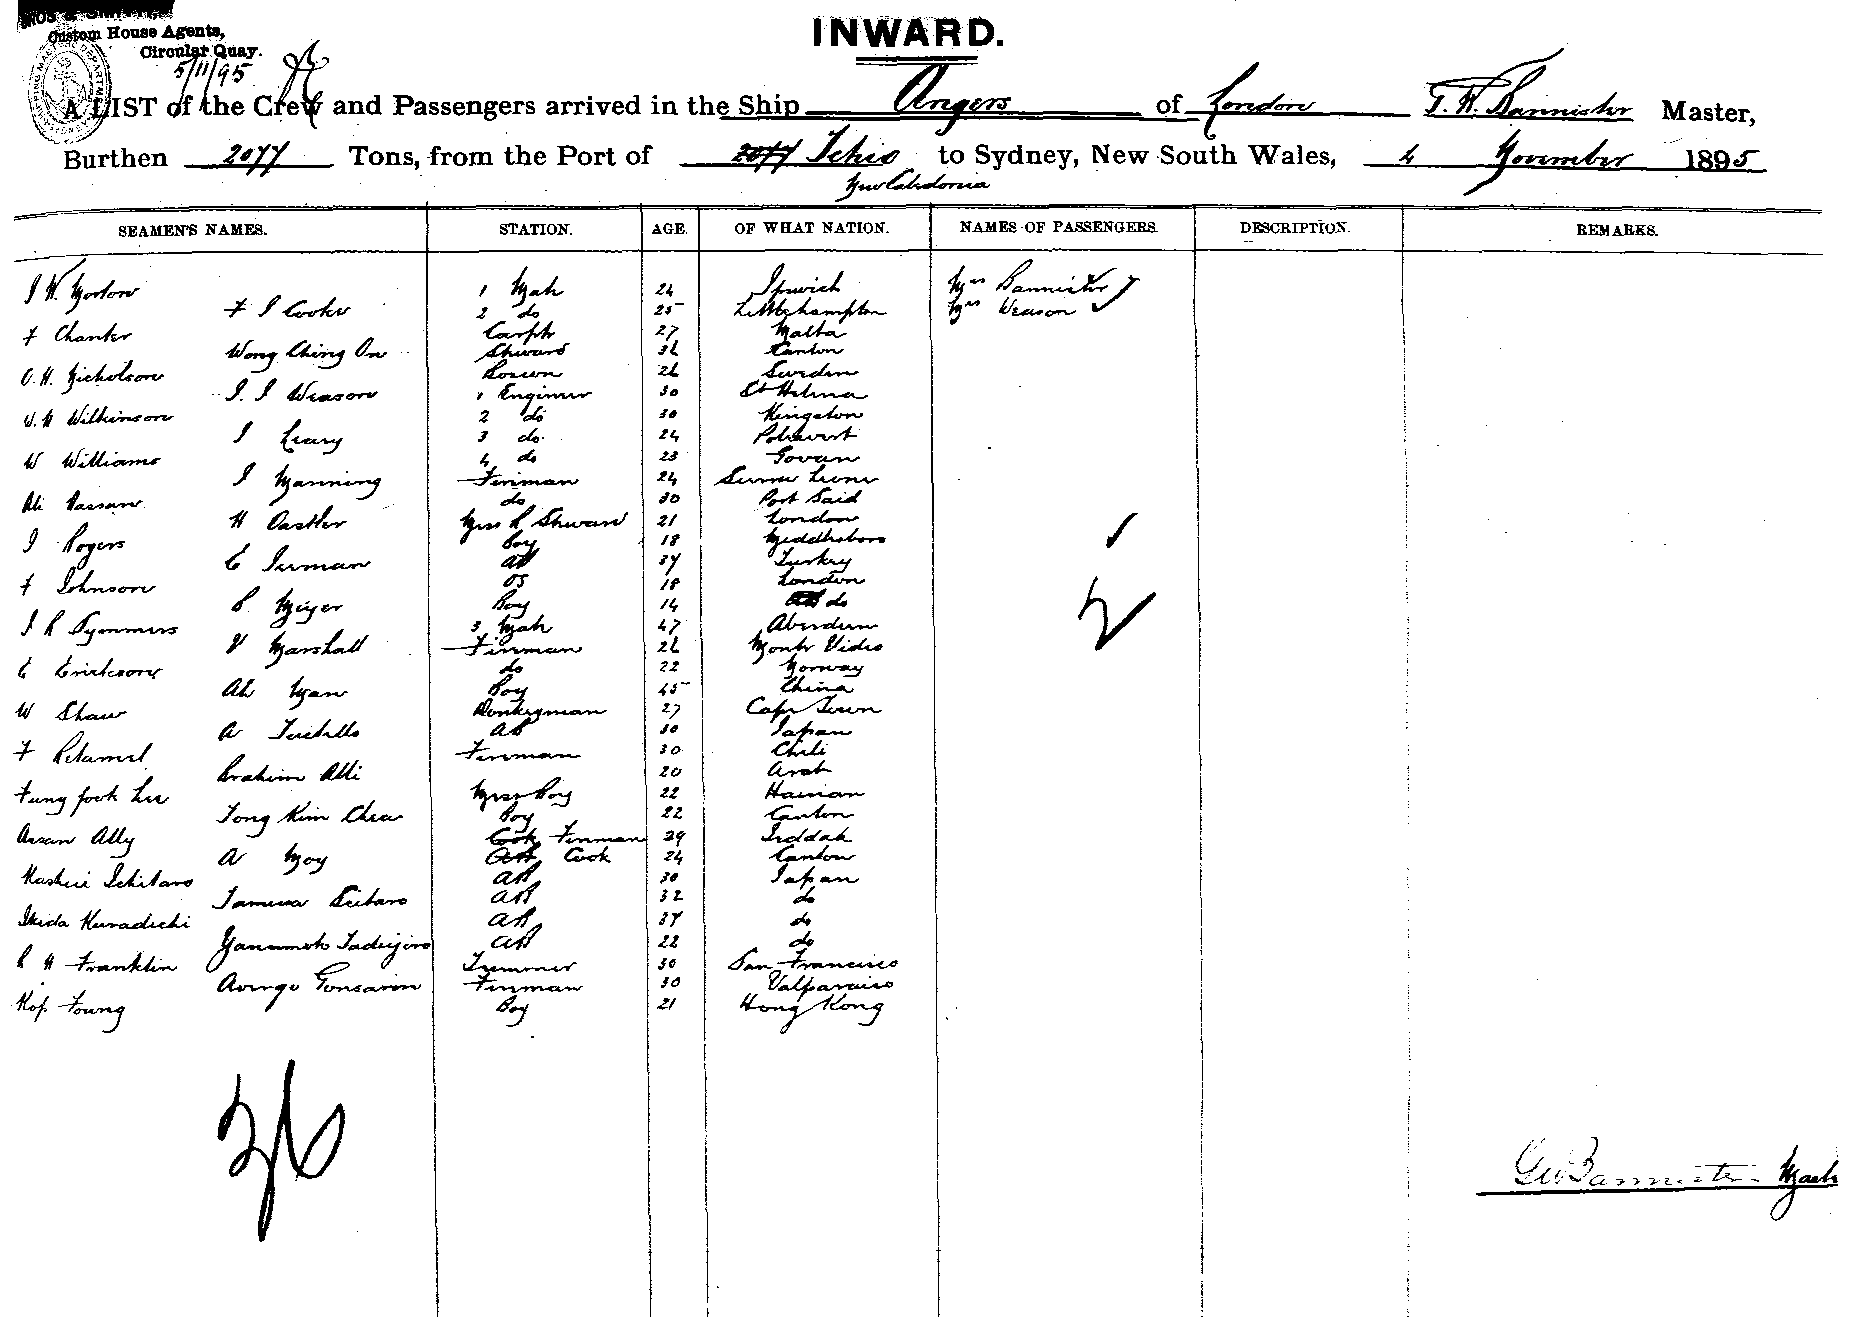 Custom House Agents,
Circular Quay.
5/11/95
INWARD.
A LIST of the Crew and Passengers arrived in the Ship Angers of London G. W. Bannister Master,
Burthen 2077 Tons, from the Port of 2077 Tchio to Sydney, New South Wales, 4 November 1895
New Caledonia
SEAMEN'S NAMES. STATION. AGE. OF WHAT NATION. NAMES OF PASSENGERS. DESCRIPTION. REMARKS.
J W. 1 Mate 24 Ipswich Mrs Bannister
F J Cooke 2 do 25 Littlehampton Mrs Weason
F Chanter Carptr 27 Malta
Wong Ching On Steward 36 Canton
O. H. Nicholson Bosun 26 Sweden
J. J Weason 1 Engineer 30 St Helena
W. H Wilkinson 2 do 30 Kingston
J Leary 3 do 24
W Williams 4 do 23 Govan
J Manning Fireman 24 Sierra Leone
Ali Hassan do 30 Port Said
H Oastler Mess R Steward 21 London
J Rogers Boy 18 Middlesboro
E Jerman AB 37 Turkey
F Johnson OS 18 London
P. Meyer Boy 14 do
J R Symmers 3 Mate 47 Aberdeen
V Marshall Fireman 26 Monte Video
E Erickson do 22 Norway
Ah Man Boy 45 China
W Shaw Donkeyman 27 Cape Town
A AB 30 Japan
F Retamel Fireman 30 Chili
Brahim Alli 20 Arab
Fung fook Lee Mess Boy 22 Hainan
Tong Kim Chea Boy 22 Canton
Assan Ally Cook Fireman 29 Jeddah
A Moy Cook 24 Canton
Ichitaro AB 30 Japan
AB 32 do
Ikeda AB 37 do
AB 22 do
R H Franklin Trimmer 30 San Francisco
Fireman 30 Valparaiso
Kop Foung Boy 21 Hong Kong
2
36
Geo Bannister Master